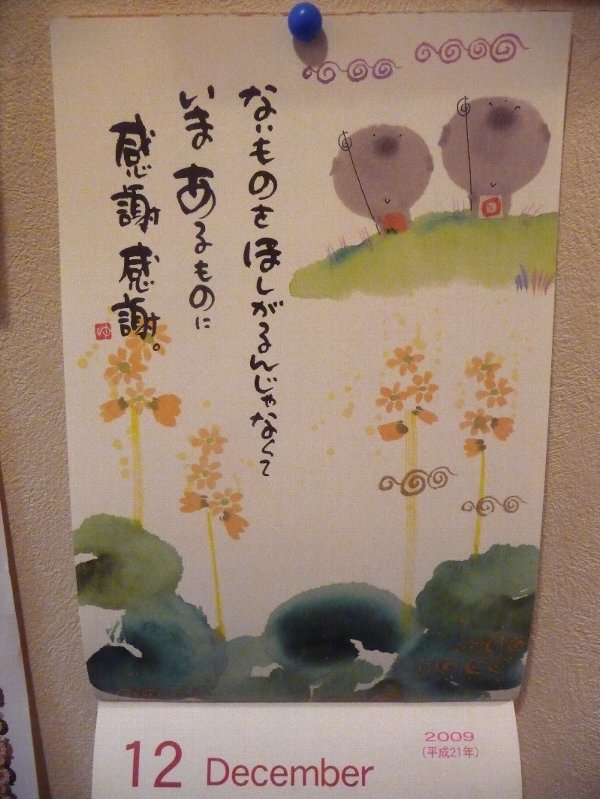 ないものをほしがるんじゃなくて
いま あるものに
感謝感謝。
12 December
2009
(平成21年)